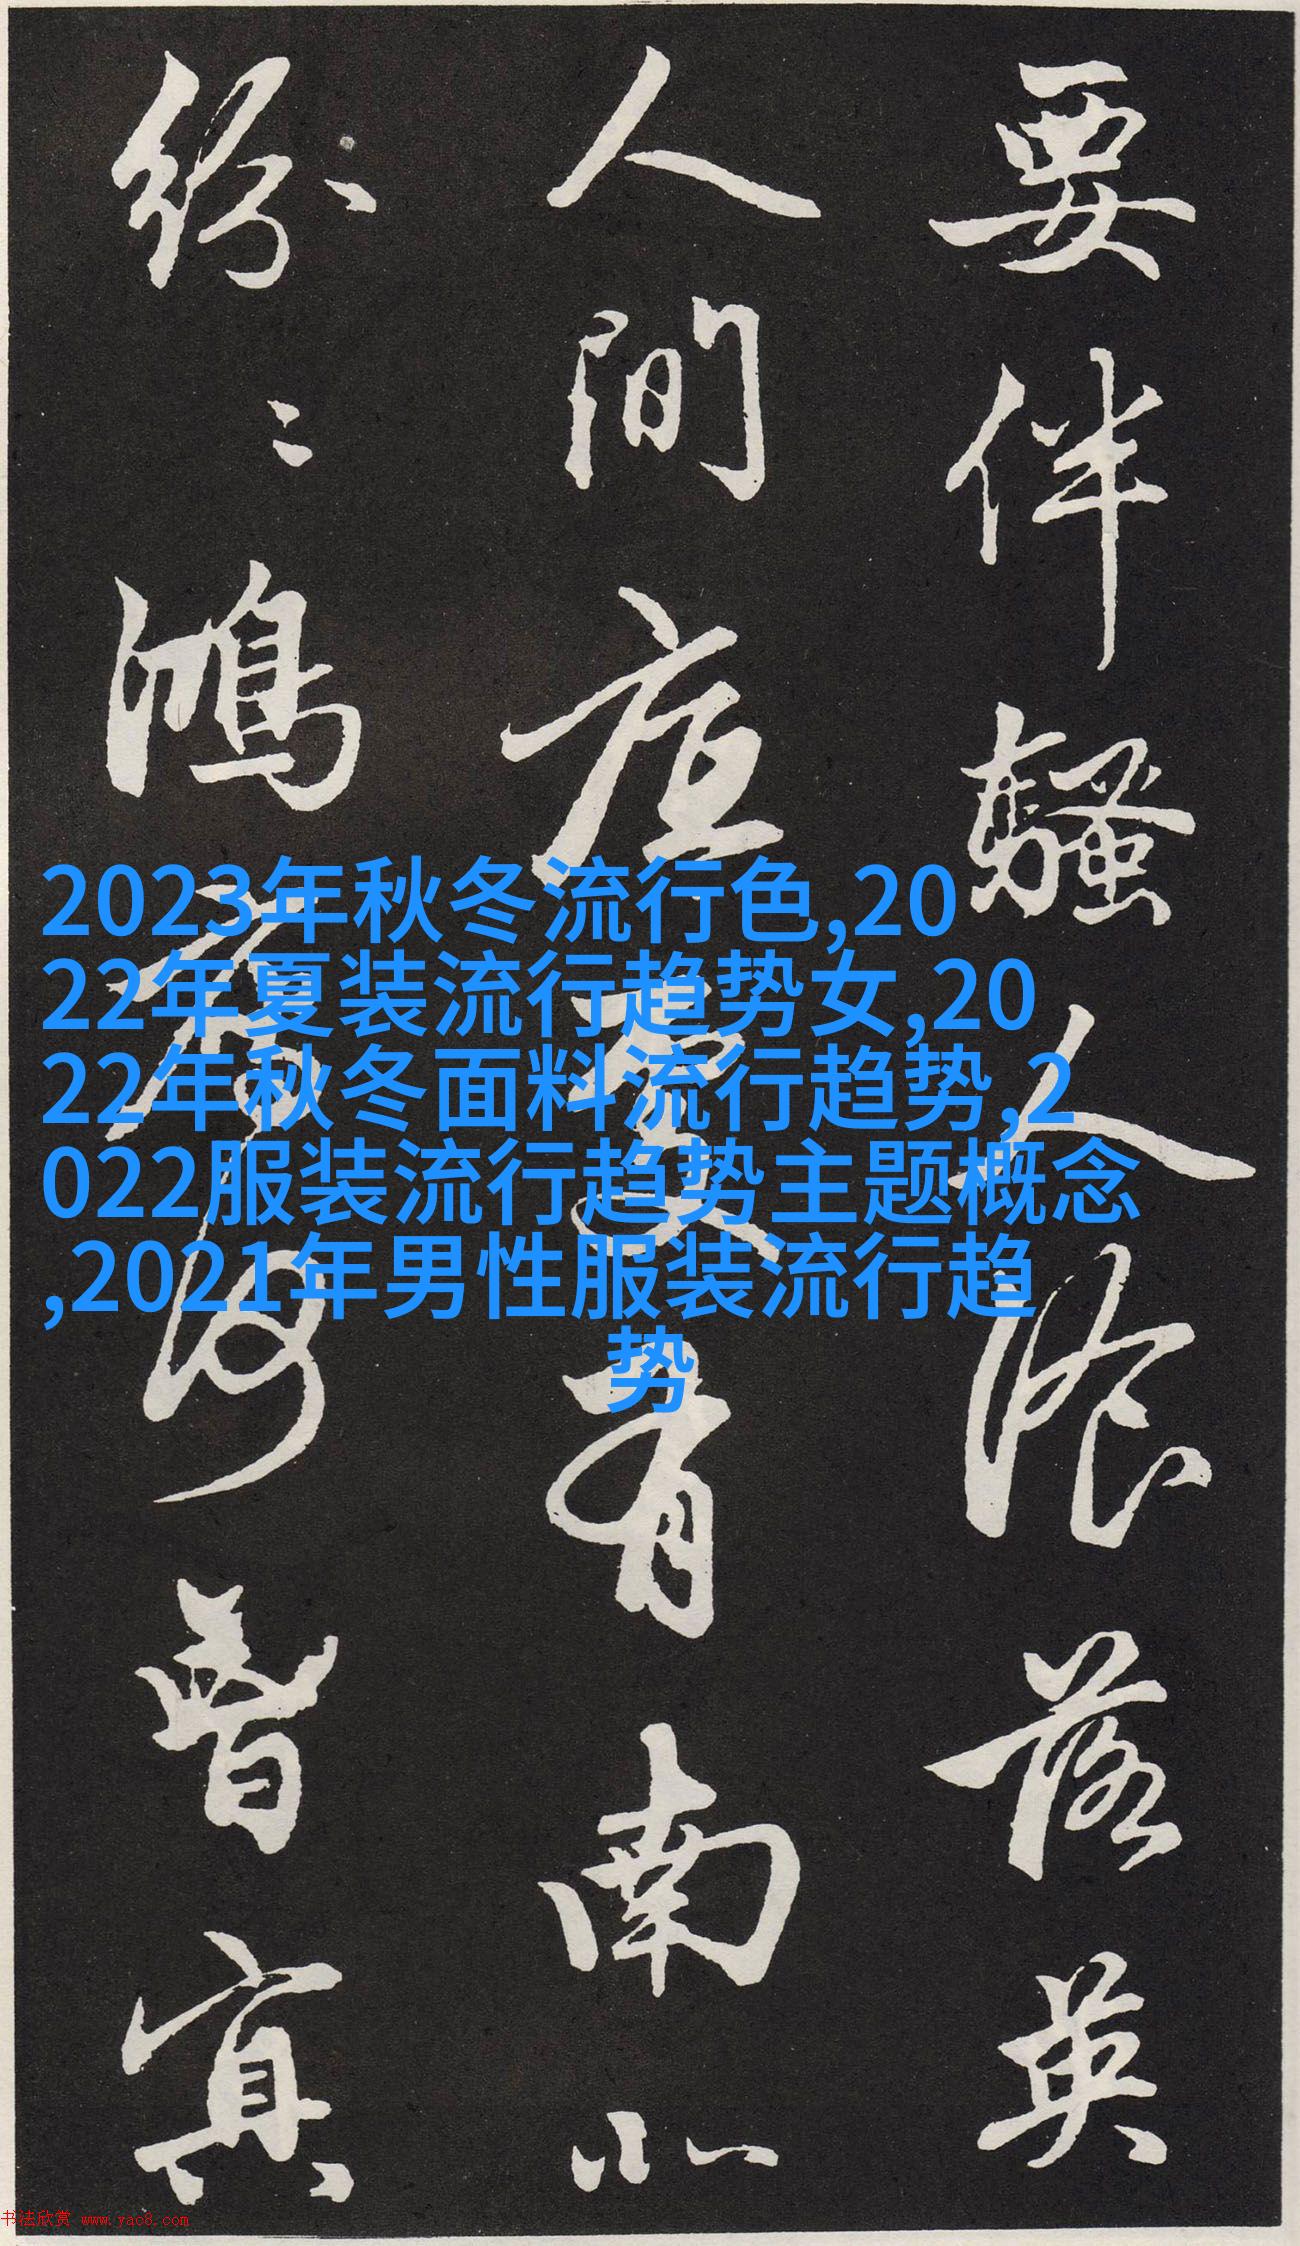 要伴騷人湌落英
人間底處有南北
紛〻鴻雁何曾冥
2023年秋冬流行色,20
22年夏装流行趋势女,20
22年秋冬面料流行趋势,2
022服装流行趋势主题概念
,2021年男性服装流行趋
势
书法欣赏 www.yac8.com